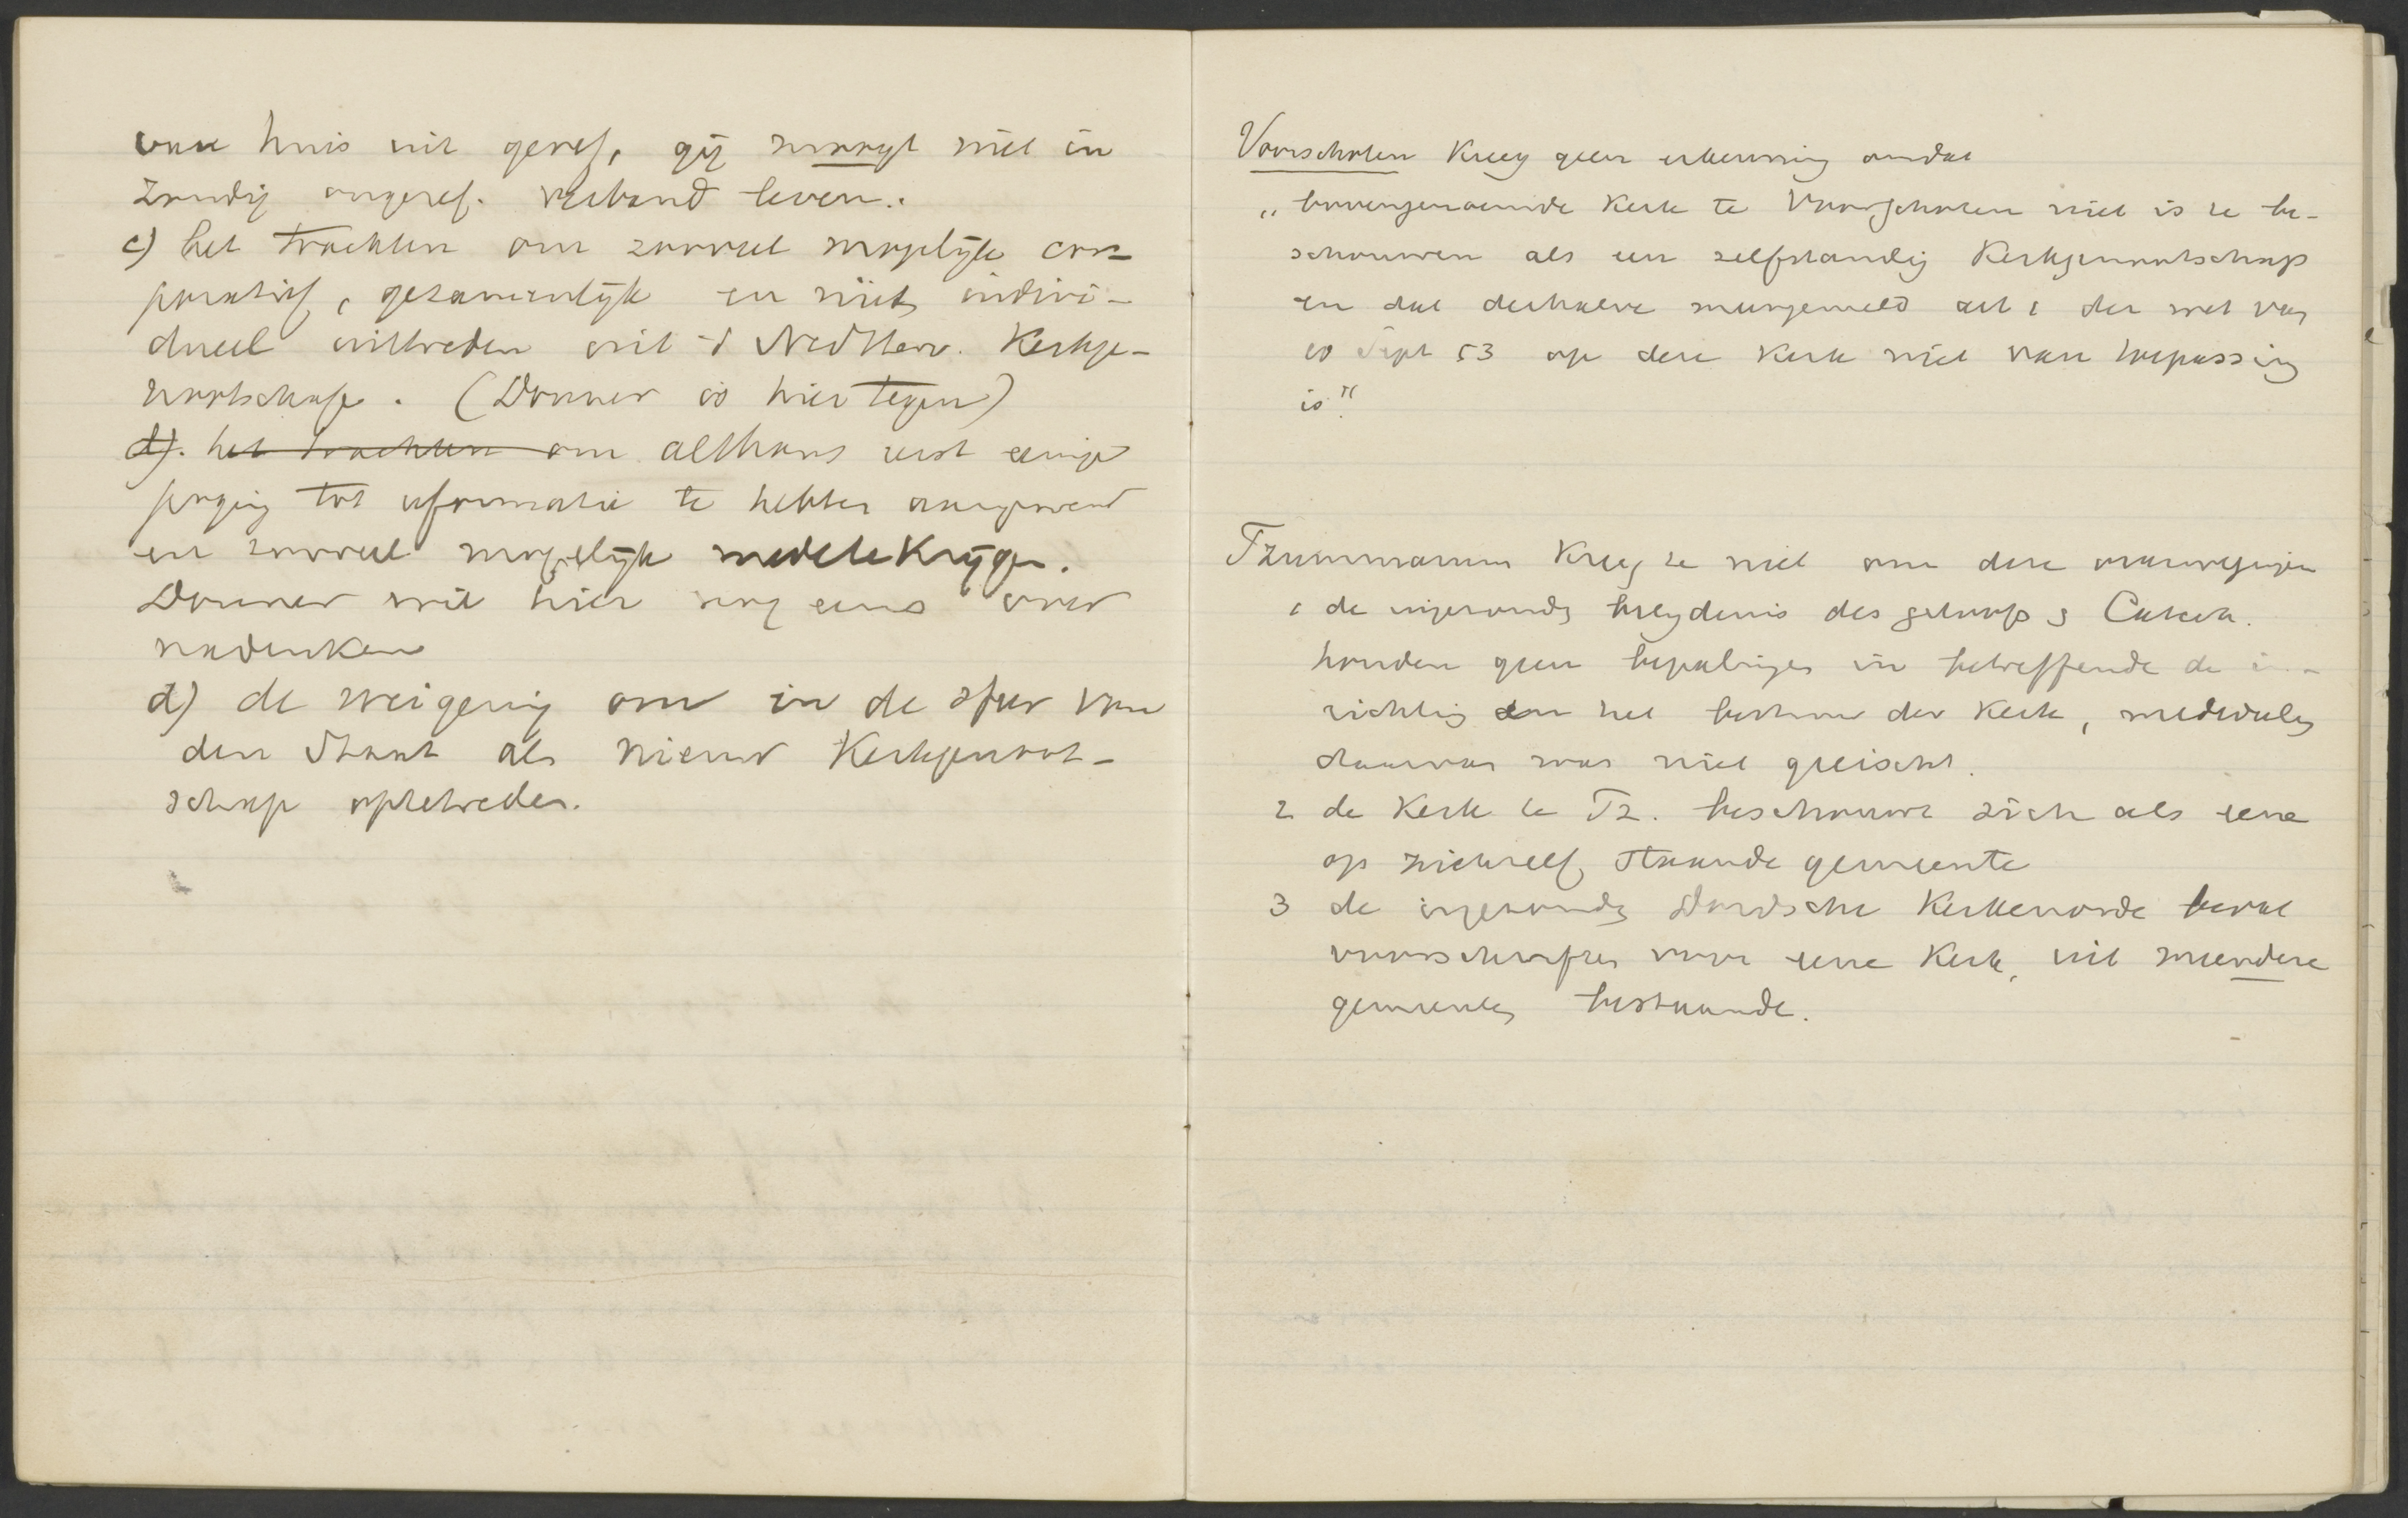 van huis uit geref, gij moogt niet in
zondig ongeref. verband leven.
c) het trachten om zooveel mogelijk cor-
poratief, gezamenlijk en niet indivi-
dueel uittreden uit 't Ned Herv. Kerkge-
nootschap. (Donner is hier tegen)
d). het trachten om althans eerst eenige
poging tot reformatie te hebben aangewend
en zooveel mogelijk mede te krijgen.
Donner wil hier nog eens over
nadenken
d) de weigering om in de sfeer van
den Staat als nieuw Kerkgenoot-
schap op te treden.
Voorschoten kreeg geen erkenning omdat
"bovengenoemde Kerk te Voorschoten niet is te be-
schouwen als een zelfstandig Kerkgenootschap
en dat derhalve meergemeld art 1 der wet van
10 Sept 53 op deze Kerk niet van toepassing
is"
Tzummarum kreeg ze niet om deze overwegingen
1 de ingezonden belijdenis des geloofs en Catech.
houden geen bepalingen in betreffende de in-
richting en het bestuur der Kerk, mededeeling
daarvan was niet geeischt.
2 de Kerk te Tz. beschouwt zich als eene
op zichzelf staande gemeente
3 de ingezonden Dordsche Kerkenorde bevat
voorschriften voor eene Kerk, uit meerdere
gemeenten bestaande.